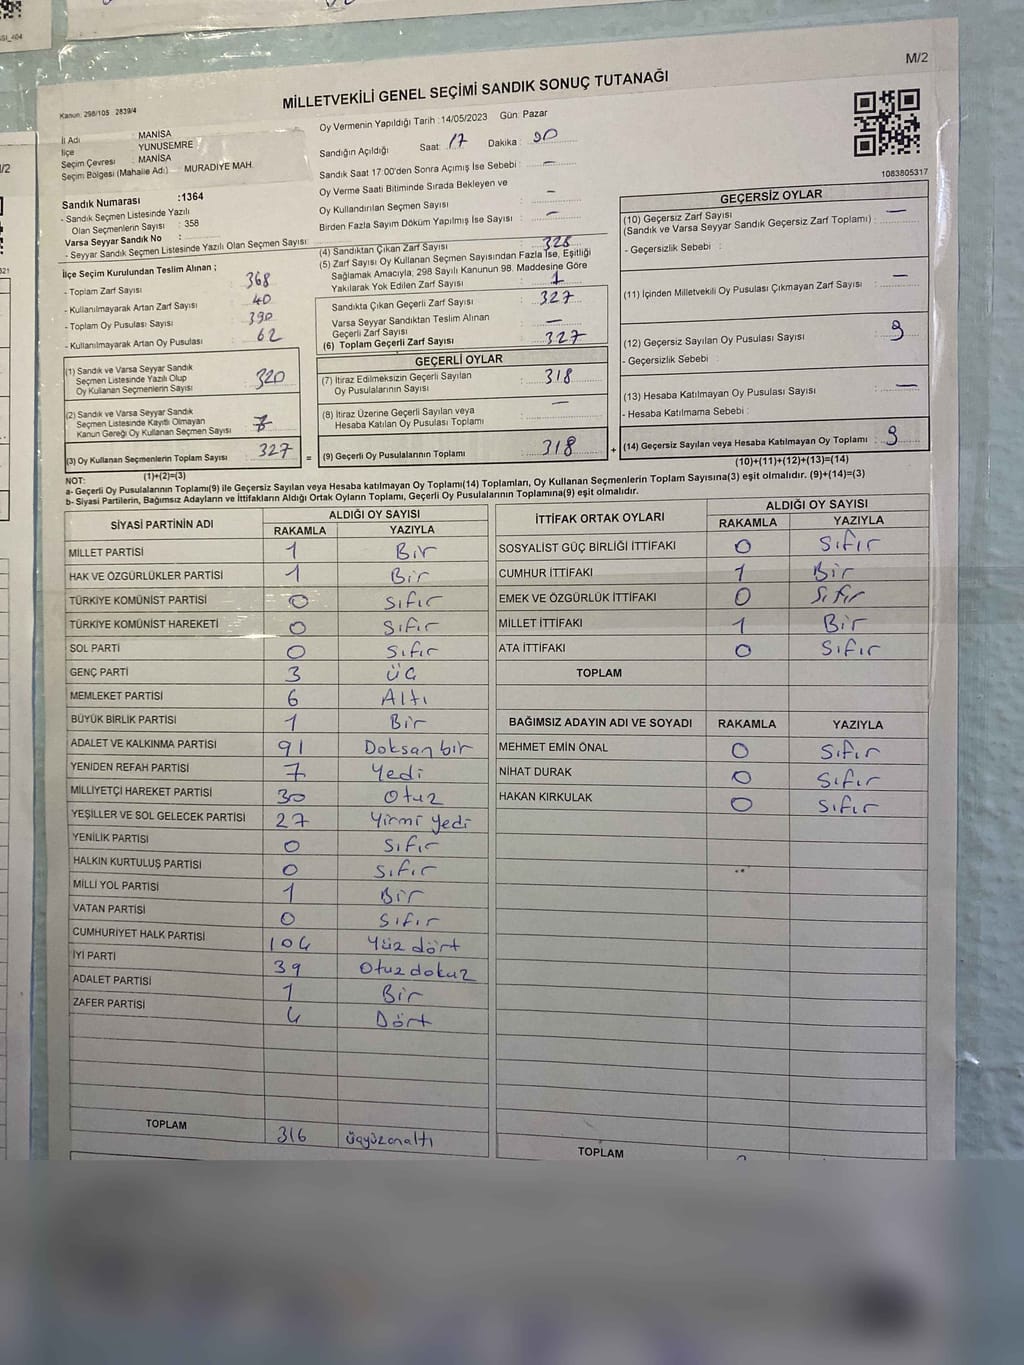 M/2
MİLLETVEKİLİ GENEL SEÇİMİ SANDIK SONUÇ TUTANAĞI
Kanun: 298/105 2839/4
İl Adı : MANİSA
İlçe : YUNUSEMRE
Seçim Çevresi : MANİSA
Seçim Bölgesi (Mahalle Adı) : MURADİYE MAH.
Sandık Numarası :1364
- Sandık Seçmen Listesinde Yazılı
Olan Seçmenlerin Sayısı : 358
Varsa Seyyar Sandık No :
- Seyyar Sandık Seçmen Listesinde Yazılı Olan Seçmen Sayısı :
Oy Vermenin Yapıldığı Tarih :14/05/2023 Gün: Pazar
Sandığın Açıldığı Saat: 17 Dakika :
Sandık Saat 17:00'den Sonra Açılmış İse Sebebi : —
Oy Verme Saati Bitiminde Sırada Bekleyen ve
Oy Kullandırılan Seçmen Sayısı : —
Birden Fazla Sayım Döküm Yapılmış İse Sayısı : —
İlçe Seçim Kurulundan Teslim Alınan ;
- Toplam Zarf Sayısı : 368
- Kullanılmayarak Artan Zarf Sayısı : 40
- Toplam Oy Pusulası Sayısı : 390
- Kullanılmayarak Artan Oy Pusulası : 62
(1) Sandık ve Varsa Seyyar Sandık
Seçmen Listesinde Yazılı Olup
Oy Kullanan Seçmenlerin Sayısı : 320
(2) Sandık ve Varsa Seyyar Sandık
Seçmen Listesinde Kayıtlı Olmayan
Kanun Gereği Oy Kullanan Seçmen Sayısı : 7
(3) Oy Kullanan Seçmenlerin Toplam Sayısı : 327
(1)+(2)=(3)
(4) Sandıktan Çıkan Zarf Sayısı : 328
(5) Zarf Sayısı Oy Kullanan Seçmen Sayısından Fazla İse, Eşitliği
Sağlamak Amacıyla; 298 Sayılı Kanunun 98. Maddesine Göre
Yakılarak Yok Edilen Zarf Sayısı : 1
Sandıkta Çıkan Geçerli Zarf Sayısı : 327
Varsa Seyyar Sandıktan Teslim Alınan
Geçerli Zarf Sayısı : —
(6) Toplam Geçerli Zarf Sayısı : 327
GEÇERLİ OYLAR
(7) İtiraz Edilmeksizin Geçerli Sayılan
Oy Pusulalarının Sayısı : 318
(8) İtiraz Üzerine Geçerli Sayılan veya
Hesaba Katılan Oy Pusulası Toplamı : —
= (9) Geçerli Oy Pusulalarının Toplamı : 318 +
1083805317
GEÇERSİZ OYLAR
(10) Geçersiz Zarf Sayısı
(Sandık ve Varsa Seyyar Sandık Geçersiz Zarf Toplamı) : —
- Geçersizlik Sebebi :
(11) İçinden Milletvekili Oy Pusulası Çıkmayan Zarf Sayısı : —
(12) Geçersiz Sayılan Oy Pusulası Sayısı : 9
- Geçersizlik Sebebi :
(13) Hesaba Katılmayan Oy Pusulası Sayısı : —
- Hesaba Katılmama Sebebi :
(14) Geçersiz Sayılan veya Hesaba Katılmayan Oy Toplamı : 9
(10)+(11)+(12)+(13)=(14)
NOT:
a- Geçerli Oy Pusulalarının Toplamı(9) ile Geçersiz Sayılan veya Hesaba katılmayan Oy Toplamı(14) Toplamları, Oy Kullanan Seçmenlerin Toplam Sayısına(3) eşit olmalıdır. (9)+(14)=(3)
b- Siyasi Partilerin, Bağımsız Adayların ve İttifakların Aldığı Ortak Oyların Toplamı, Geçerli Oy Pusulalarının Toplamına(9) eşit olmalıdır.
SİYASİ PARTİNİN ADI ALDIĞI OY SAYISI
RAKAMLA YAZIYLA
MİLLET PARTİSİ 1 Bir
HAK VE ÖZGÜRLÜKLER PARTİSİ 1 Bir
TÜRKİYE KOMÜNİST PARTİSİ 0 Sıfır
TÜRKİYE KOMÜNİST HAREKETİ 0 Sıfır
SOL PARTİ 0 Sıfır
GENÇ PARTİ 3 ÜÇ
MEMLEKET PARTİSİ 6 Altı
BÜYÜK BİRLİK PARTİSİ 1 Bir
ADALET VE KALKINMA PARTİSİ 91 Doksan bir
YENİDEN REFAH PARTİSİ 7 Yedi
MİLLİYETÇİ HAREKET PARTİSİ 30 Otuz
YEŞİLLER VE SOL GELECEK PARTİSİ 27 Yirmi Yedi
YENİLİK PARTİSİ 0 Sıfır
HALKIN KURTULUŞ PARTİSİ 0 Sıfır
MİLLİ YOL PARTİSİ 1 Bir
VATAN PARTİSİ 0 Sıfır
CUMHURİYET HALK PARTİSİ 104 Yüz dört
İYİ PARTİ 39 Otuz dokuz
ADALET PARTİSİ 1 Bir
ZAFER PARTİSİ 4 Dört
TOPLAM 316 üçyüzonaltı
İTTİFAK ORTAK OYLARI ALDIĞI OY SAYISI
RAKAMLA YAZIYLA
SOSYALİST GÜÇ BİRLİĞİ İTTİFAKI 0 Sıfır
CUMHUR İTTİFAKI 1 Bir
EMEK VE ÖZGÜRLÜK İTTİFAKI 0 Sıfır
MİLLET İTTİFAKI 1 Bir
ATA İTTİFAKI 0 Sıfır
TOPLAM
BAĞIMSIZ ADAYIN ADI VE SOYADI RAKAMLA YAZIYLA
MEHMET EMİN ÖNAL 0 Sıfır
NİHAT DURAK 0 Sıfır
HAKAN KIRKULAK 0 Sıfır
TOPLAM